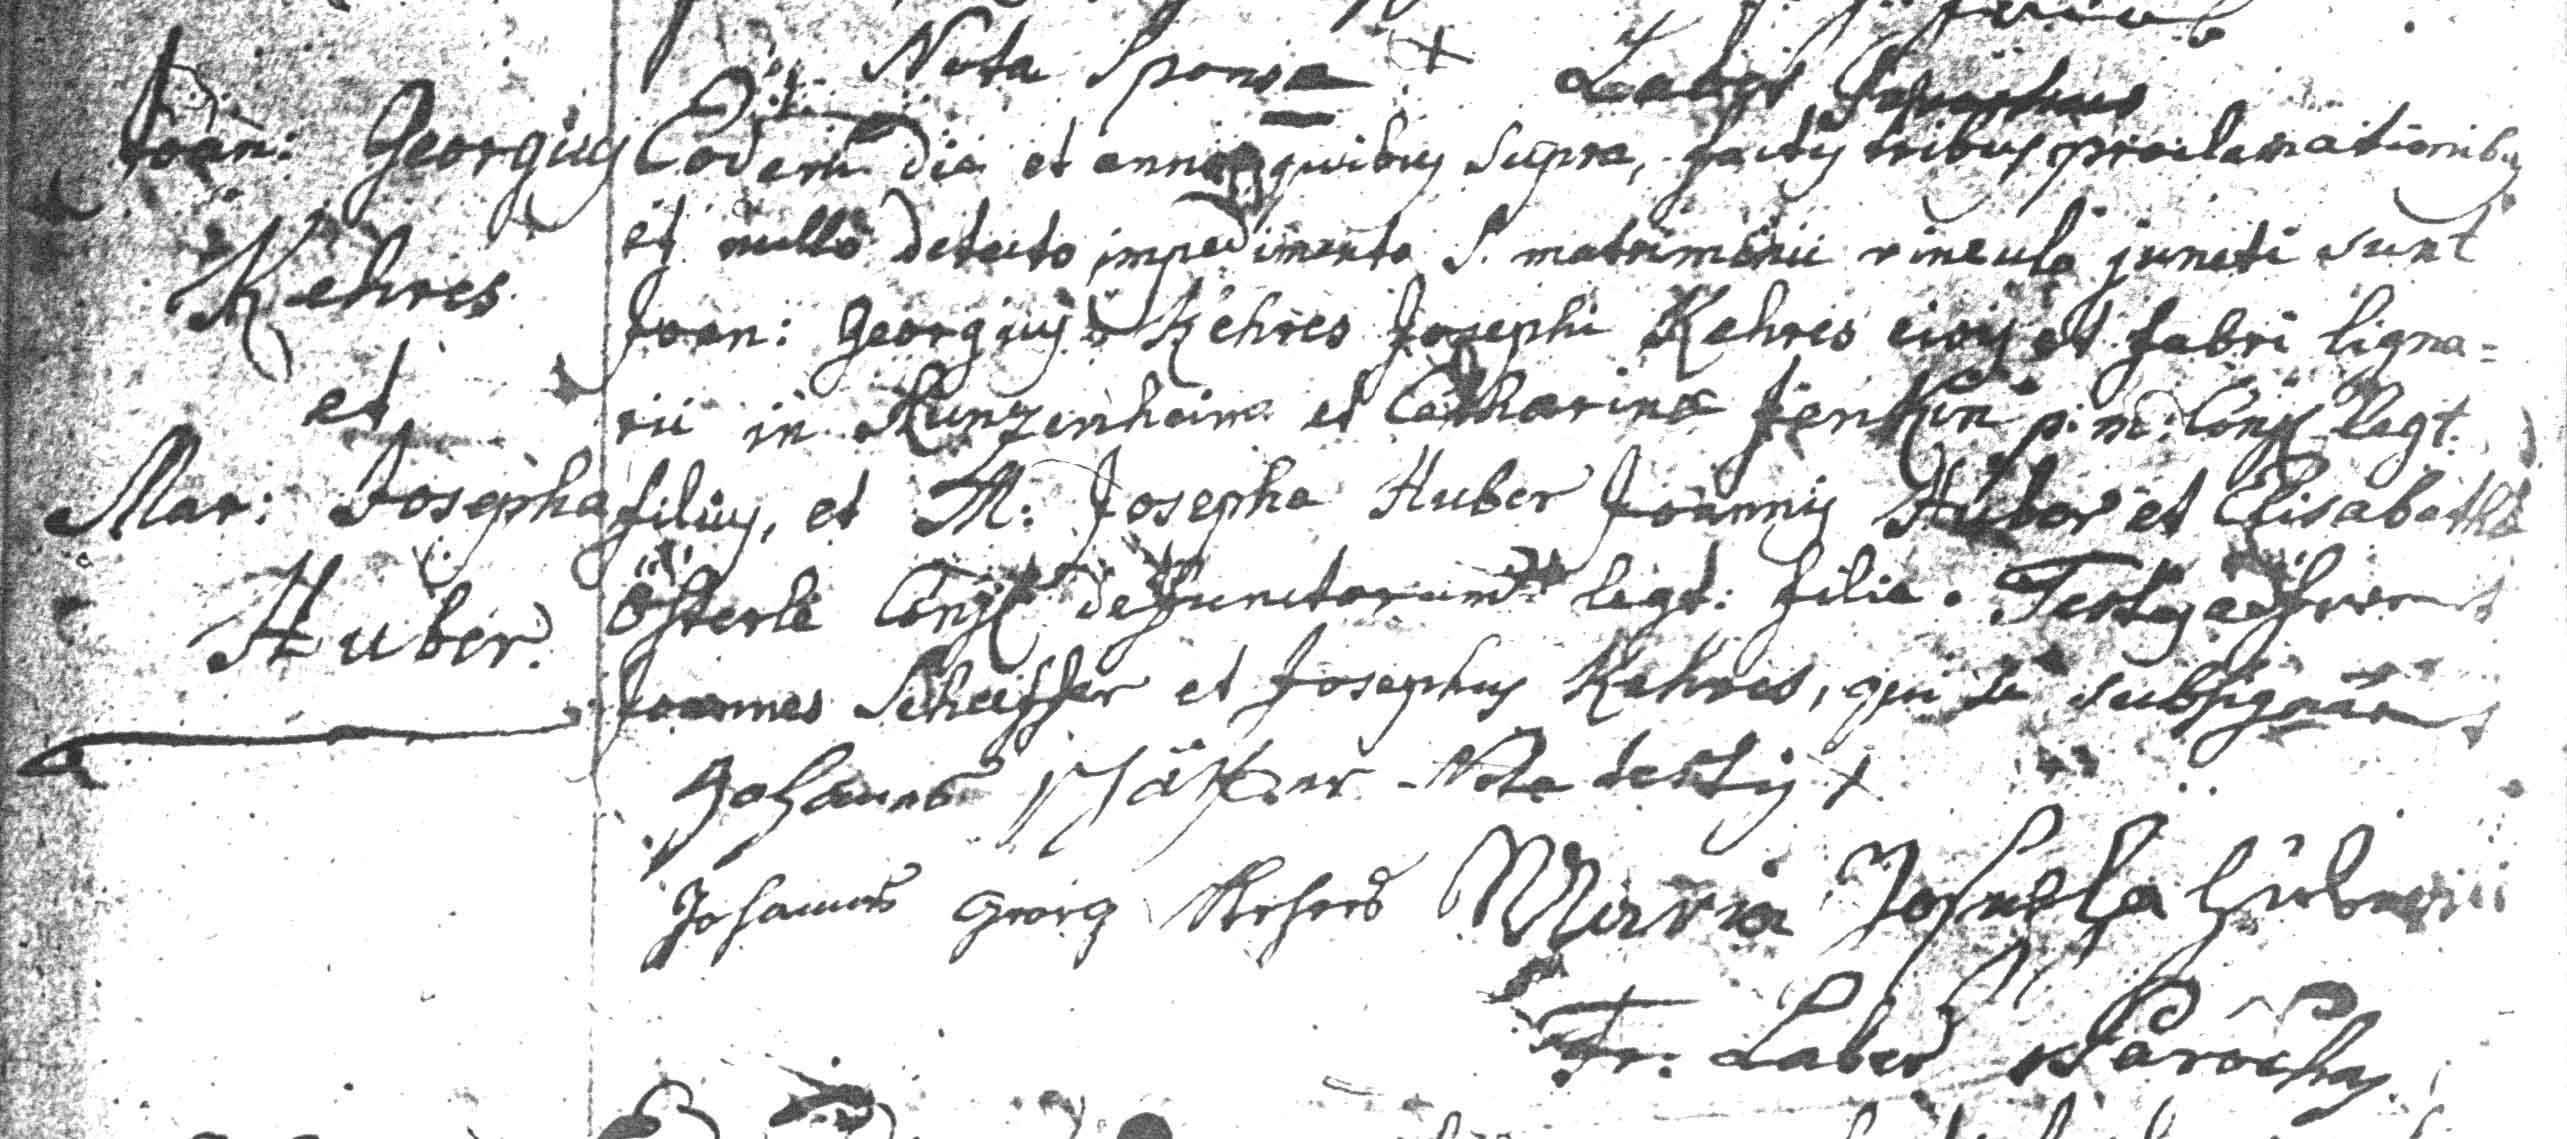 Nota Sponsa +
Joan: Georgius
Kehres
et
Mar: Josepha
Huber.
Eodem die et anno quibus supra, factis tribus proclamationibus
et nullo detecto impedimento S. matrimonii vinculo juncti sunt
Joan: Georgius Kehres Josephi Kehres civis et fabri ligna=
rii in Kunzenheim et Catharina p: m: Conj: legt.
filius, et M: Josepha Huber Joannis Huber et Elisabetha
Österle Conj: defunctorum legt: filia. Testes
Joannes Scheffer et Josephus Kehres, qui se subsignarunt
Johannes Schäffer Nota testis +
Johannes Georg Kehres Maria Josepha Huberin
Fr: Laber Parochus